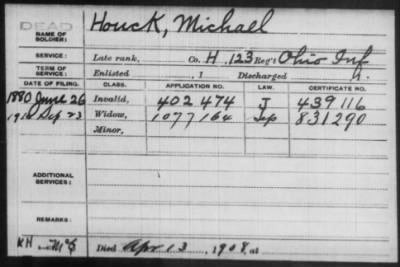 DEAD
NAME OF SOLDIER: Houck, Michael
SERVICE: Late rank, Co. H, 123 Reg't Ohio Inf
TERM OF SERVICE: Enlisted , 1 Discharged
DATE OF FILING. CLASS. APPLICATION NO. LAW. CERTIFICATE NO.
1880 June 26 Invalid, 402 474 J 439 116
Sep 23 Widow, 1077 164 831290
Minor,
ADDITIONAL SERVICES:
REMARKS:
KH Died Apr 13, 1908, at